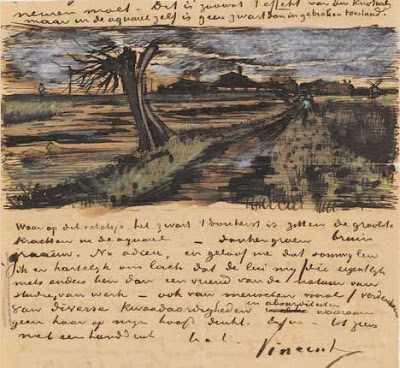 nemen moet. Dit is zoowat 't effekt van den Knotwilg
maar in de aquarel zelf is geen zwart dan in gebroken toestand.
Waar op dit schetsje het zwart 't donkerst is zitten de grootste
krachten in de aquarel — donker groen bruin
graauw. Nu adieu, en geloof me dat somwijlen
ik er hartelijk om lach dat de lui mij die eigentlijk
niets anders ben dan een vriend van de natuur van
studie, van werk — ook van menschen vooral / verdenken
van diverse kwaadaardigheden en absurditeiten waaraan
geen haar op mijn hoofd denkt. Enfin — tot ziens
met een handdruk
Vincent